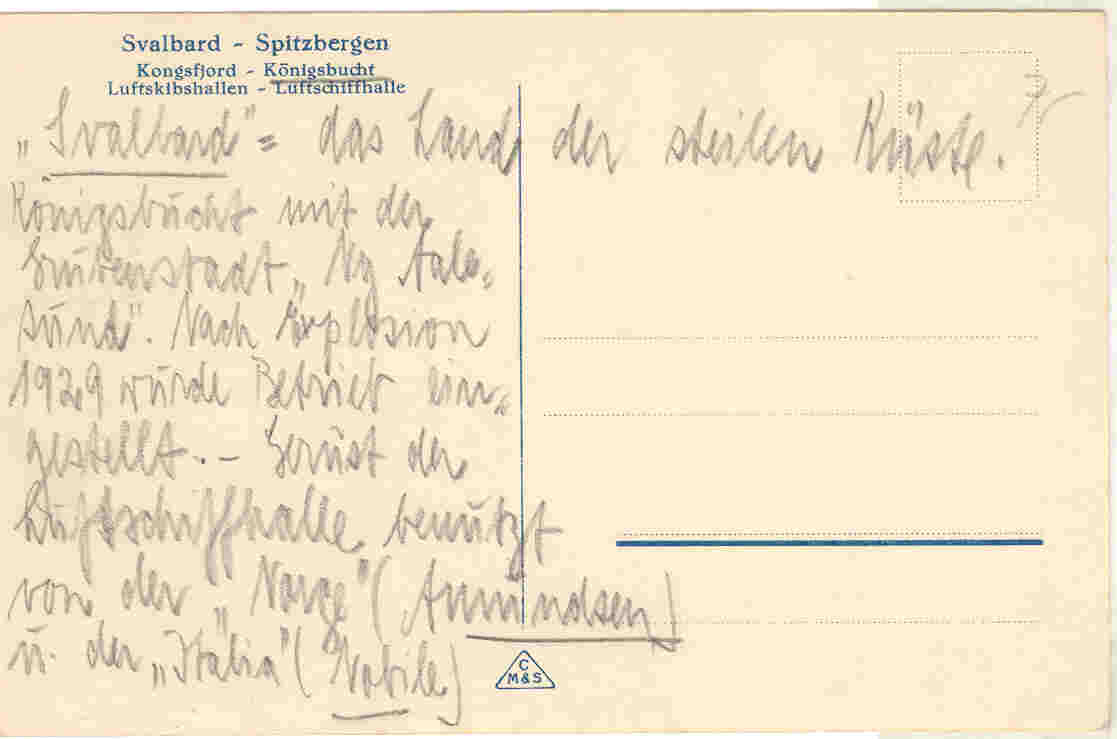 Svalbard - Spitzbergen
Kongsfjord - Königsbucht
Luftskibshallen - Luftschiffhalle
„Svalbard" = das Land der steilen Küste.
Königsbucht mit der
Grubenstadt „Ny Aale-
sund". Nach Explosion
1929 wurde Betrieb ein-
gestellt. - Gerüst der
Luftschiffhalle, benützt
von der „Norge" (Amundsen)
u. der „Italia" (Nobile)
C
M&S